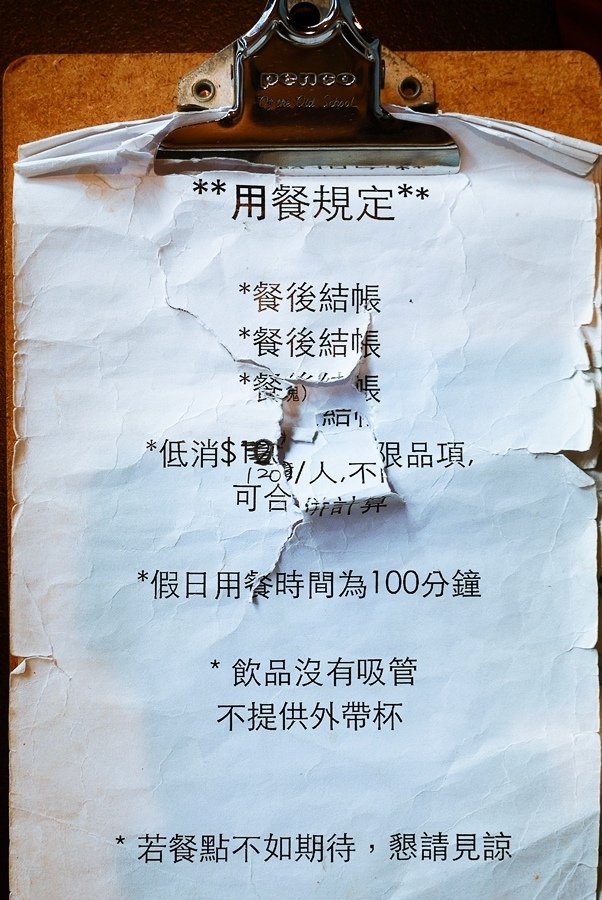 penco
**用餐規定**
*餐後結帳
*餐後結帳
*餐後結帳
結帳
*低消$120/人,不限品項,
可合併計算
*假日用餐時間為100分鐘
* 飲品沒有吸管
不提供外帶杯
* 若餐點不如期待，懇請見諒